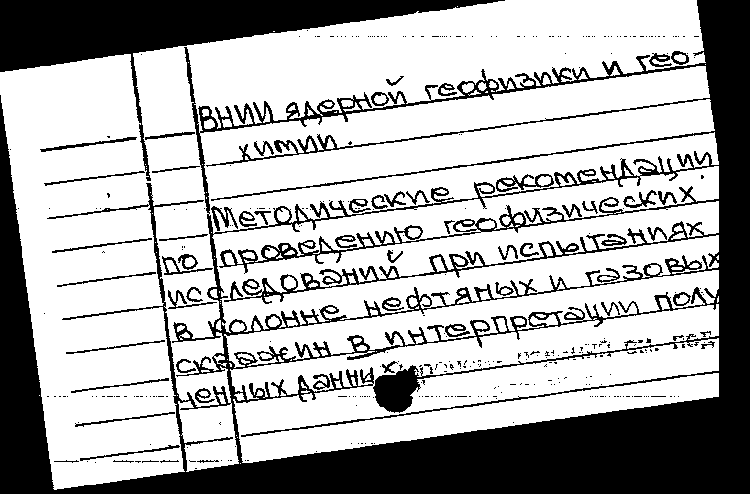 ВНИИ ядерной геофизики и гео-
химии.
Методические рекомендации
по проведению геофизических
исследований при испытаниях
в колонне нефтяных и газовых
скважин в интерпретации полу
ченных данных